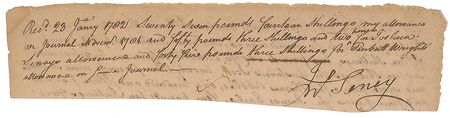 Recd. 23 Janry 1782 Seventy Seven pounds fourteen Shillings my allowance
on Journal Novemr. 1781 and fifty pounds three Shillings and two pence for Joshua
Seneys allowance and forty five pounds three Shillings for Wrights
allowance on Same Journal
Seney